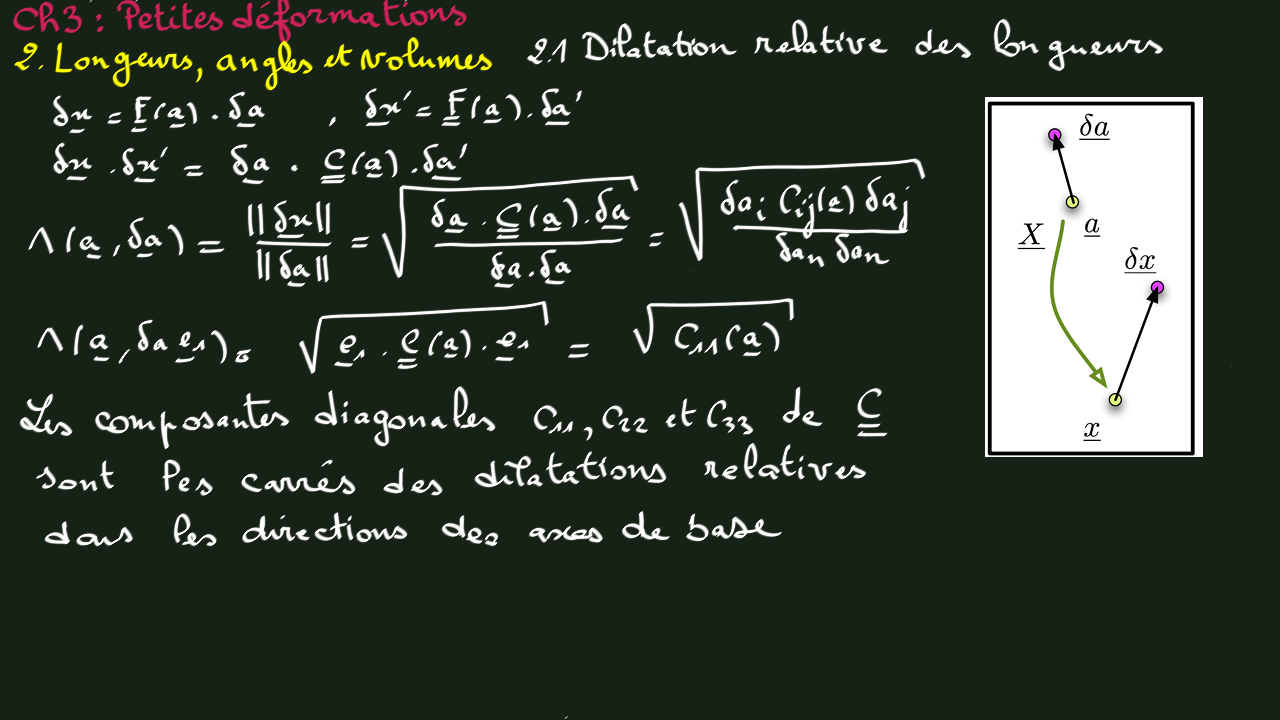 Ch3 : Petites déformations
2. Longeurs, angles et volumes 2.1 Dilatation relative des longueurs
δx = F(a) . δa , δx' = F(a) . δa'
δx . δx' = δa . C(a) . δa'
Λ(a, δa) = ||δx|| / ||δa|| = √(δa . C(a) . δa / δa . δa) = √(δai Cij(a) δaj / δan δan)
Λ(a, δa e1) = √(e1 . C(a) . e1) = √(C11(a))
Les composantes diagonales C11, C22 et C33 de C
sont les carrés des dilatations relatives
dans les directions des axes de base
δa
a
X
δx
x